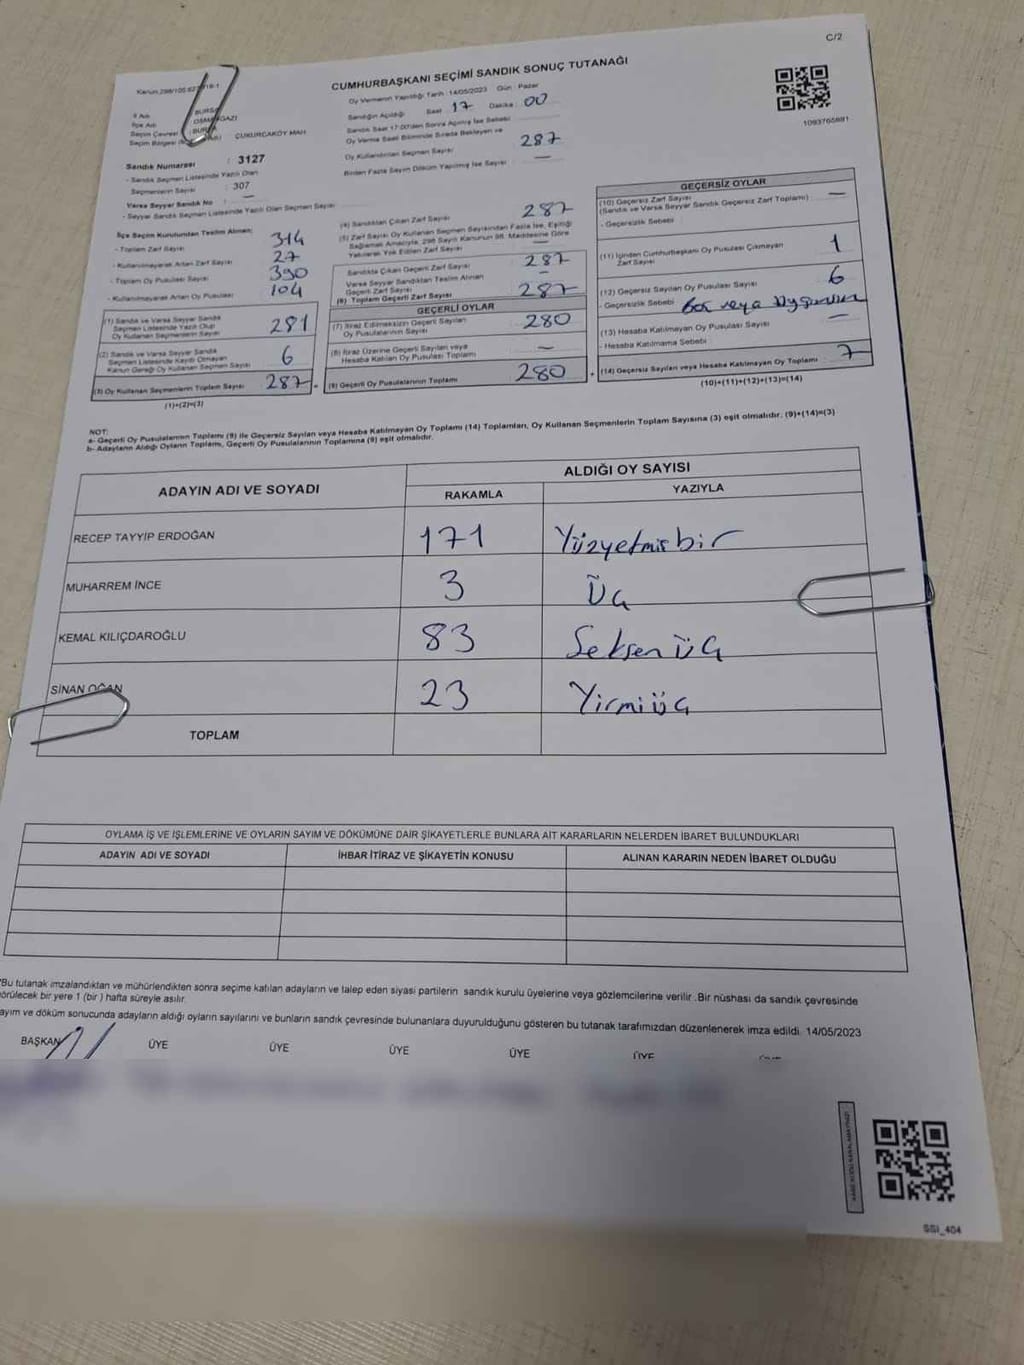 C/2
CUMHURBAŞKANI SEÇİMİ SANDIK SONUÇ TUTANAĞI
1093765891
İl Adı : BURSA
İlçe Adı
Seçim Çevresi : BURSA
Seçim Bölgesi ÇUKURCAKÖY MAH
Sandık Numarası : 3127
- Sandık Seçmen Listesinde Yazılı Olan
Seçmenlerin Sayısı : 307
Varsa Seyyar Sandık No : —
- Seyyar Sandık Seçmen Listesinde Yazılı Olan Seçmen Sayısı
Oy Vermenin Yapıldığı Tarih : 14/05/2023 Gün : Pazar
Sandığın Açıldığı Saat 17 Dakika : 00
Sandık Saat 17:00'den Sonra Açılmış İse Sebebi
Oy Verme Saati Bitiminde Sırada Bekleyen ve
Oy Kullandırılan Seçmen Sayısı 287
Birden Fazla Sayım Döküm Yapılmış İse Sayısı —
İlçe Seçim Kurulundan Teslim Alınan;
- Toplam Zarf Sayısı 314
- Kullanılmayarak Artan Zarf Sayısı 27
- Toplam Oy Pusulası Sayısı 390
- Kullanılmayarak Artan Oy Pusulası 104
(1) Sandık ve Varsa Seyyar Sandık
Seçmen Listesinde Yazılı Olup
Oy Kullanan Seçmenlerin Sayısı 281
(2) Sandık ve Varsa Seyyar Sandık
Seçmen Listesinde Kaydı Olmayan
Kanun Gereği Oy Kullanan Seçmen Sayısı 6
(3) Oy Kullanan Seçmenlerin Toplam Sayısı 287
(1)+(2)=(3)
(4) Sandıktan Çıkan Zarf Sayısı 287
(5) Zarf Sayısı Oy Kullanan Seçmen Sayısından Fazla İse, Eşitliği
Sağlamak Amacıyla, 298 Sayılı Kanunun 98. Maddesine Göre
Yakılarak Yok Edilen Zarf Sayısı —
Sandıkta Çıkan Geçerli Zarf Sayısı 287
Varsa Seyyar Sandıktan Teslim Alınan
Geçerli Zarf Sayısı —
(6) Toplam Geçerli Zarf Sayısı 287
GEÇERLİ OYLAR
(7) İtiraz Edilmeksizin Geçerli Sayılan
Oy Pusulalarının Sayısı 280
(8) İtiraz Üzerine Geçerli Sayılan veya
Hesaba Katılan Oy Pusulası Toplamı —
(9) Geçerli Oy Pusulalarının Toplamı 280
GEÇERSİZ OYLAR
(10) Geçersiz Zarf Sayısı —
(Sandık ve Varsa Seyyar Sandık Geçersiz Zarf Toplamı)
- Geçersizlik Sebebi
(11) İçinden Cumhurbaşkanı Oy Pusulası Çıkmayan
Zarf Sayısı 1
(12) Geçersiz Sayılan Oy Pusulası Sayısı 6
- Geçersizlik Sebebi boş veya
(13) Hesaba Katılmayan Oy Pusulası Sayısı —
- Hesaba Katılmama Sebebi
(14) Geçersiz Sayılan veya Hesaba Katılmayan Oy Toplamı 7
(10)+(11)+(12)+(13)=(14)
NOT:
a- Geçerli Oy Pusulalarının Toplamı (9) ile Geçersiz Sayılan veya Hesaba Katılmayan Oy Toplamı (14) Toplamları, Oy Kullanan Seçmenlerin Toplam Sayısına (3) eşit olmalıdır. (9)+(14)=(3)
b- Adayların Aldığı Oyların Toplamı, Geçerli Oy Pusulalarının Toplamına (9) eşit olmalıdır.
ADAYIN ADI VE SOYADI ALDIĞI OY SAYISI
RAKAMLA YAZIYLA
RECEP TAYYİP ERDOĞAN 171 Yüzyetmişbir
MUHARREM İNCE 3 Üç
KEMAL KILIÇDAROĞLU 83 Seksen üç
SİNAN OĞAN 23 Yirmiüç
TOPLAM
OYLAMA İŞ VE İŞLEMLERİNE VE OYLARIN SAYIM VE DÖKÜMÜNE DAİR ŞİKAYETLERLE BUNLARA AİT KARARLARIN NELERDEN İBARET BULUNDUKLARI
ADAYIN ADI VE SOYADI İHBAR İTİRAZ VE ŞİKAYETİN KONUSU ALINAN KARARIN NEDEN İBARET OLDUĞU
*Bu tutanak imzalandıktan ve mühürlendikten sonra seçime katılan adayların ve talep eden siyasi partilerin sandık kurulu üyelerine veya gözlemcilerine verilir .Bir nüshası da sandık çevresinde
görülecek bir yere 1 (bir ) hafta süreyle asılır.
ayım ve döküm sonucunda adayların aldığı oyların sayılarını ve bunların sandık çevresinde bulunanlara duyurulduğunu gösteren bu tutanak tarafımızdan düzenlenerek imza edildi. 14/05/2023
BAŞKAN ÜYE ÜYE ÜYE ÜYE ÜYE
SSİ_404